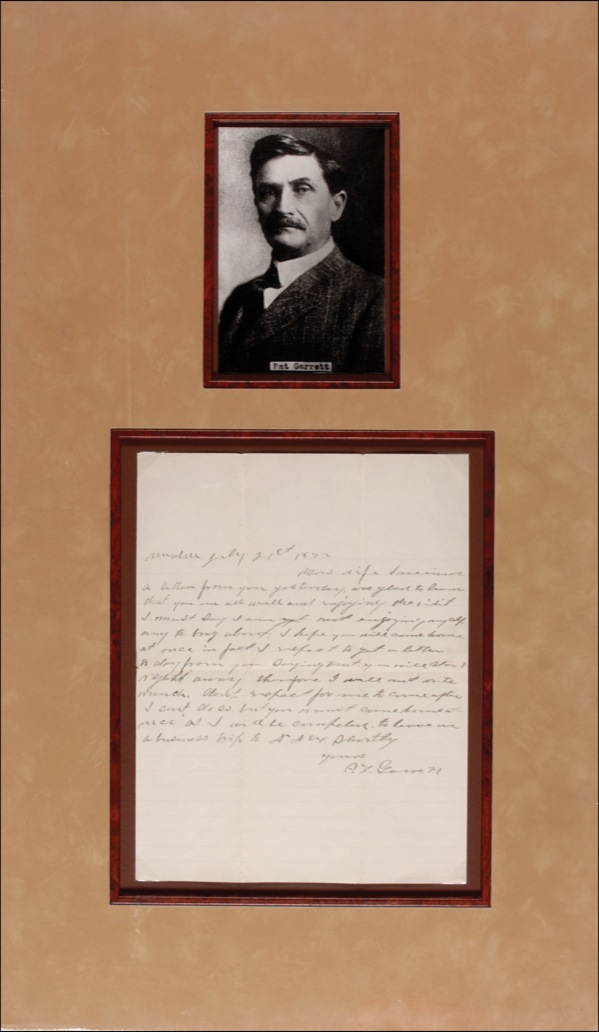 Pat Garrett
July 21st
Dear wife I recieved
a letter from you yesterday, was glad to learn
that you are all well and enjoying the visit
I must say I am yet not enjoying myself
any to brag about, I hope you will come home
at once in fact I expect to get a letter
to day from you saying that you will start
right away, therefore I will not rite
much, don't expect for me to come after
I cant do so but you must come home
once as I will be compelled to leave on
a business trip to shortly
yours
P.F. Garrett